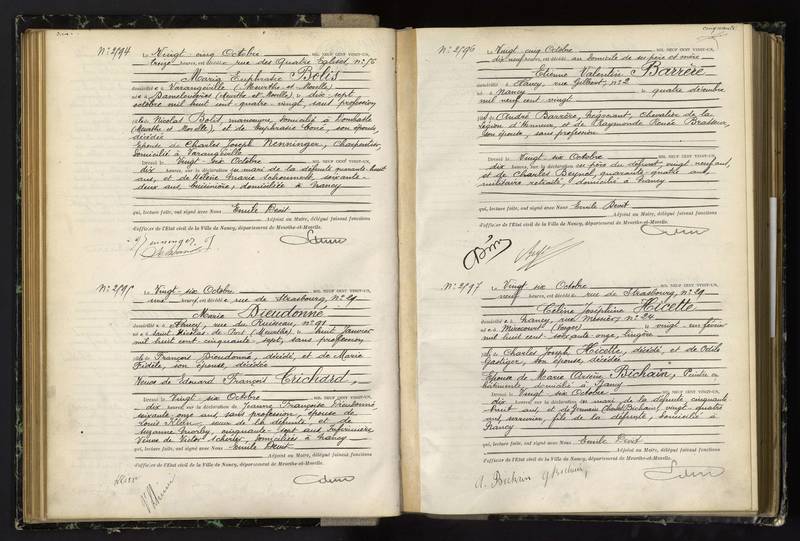 N° 2194 Le Vingt-cinq Octobre MIL NEUF CENT VINGT-UN,
treize heures, est décédée rue des Quatre Eglises n° 76
Marie Euphrasie Bolis
domiciliée à Varangéville (Meurthe et Moselle)
née à (Meurthe et Moselle) le dix-sept
octobre mil huit cent quatre-vingt, sans profession
fille de Nicolas Bolis, manœuvre, domicilié à
(Meurthe et Moselle), et de Euphrasie son épouse,
décédée
Epouse de Charles Joseph Nenninger, Charpentier,
domicilié à Varangéville
Dressé le Vingt-six Octobre MIL NEUF CENT VINGT-UN,
dix heures, sur la déclaration du mari de la défunte quarante-huit
ans, et de Hélène Marie soixante-
deux ans cuisinière, domiciliée à Nancy
qui, lecture faite, ont signé avec Nous Emile Devit
Adjoint au Maire, délégué faisant fonctions
d'officier de l'Etat civil de la Ville de Nancy, département de Meurthe-et-Moselle.
N° 2195 Le Vingt-six Octobre MIL NEUF CENT VINGT-UN,
une heure, est décédée rue de Strasbourg, n° 29
Marie Dieudonné
domiciliée à Nancy, rue du Ruisseau, n° 91
née à Saint Nicolas de Port (Meurthe) le huit Janvier
mil huit cent cinquante-sept, sans profession
fille de François Dieudonné, décédé, et de Marie
Fidèle, son épouse, décédée
Veuve de Edouard François Crichard,
Dressé le Vingt six Octobre MIL NEUF CENT VINGT-UN,
dix heures, sur la déclaration de Jeanne Françoise Dieudonné
soixante onze ans, sans profession, épouse de
Louis Klein, sœur de la défunte, et de
Suzanne cinquante-sept ans Infirmière
Veuve de Victor Scharly, domiciliées à Nancy
qui, lecture faite, ont signé avec Nous Emile Devit
Adjoint au Maire, délégué faisant fonctions
d'officier de l'Etat civil de la Ville de Nancy, département de Meurthe-et-Moselle.
N° 2196 Le Vingt-cinq Octobre MIL NEUF CENT VINGT-UN,
dix neuf heures, est décédé au domicile de ses père et mère
Etienne Valentin Barrère
domicilié à Nancy, rue Gilbert, n° 2
né à Nancy le quatre décembre
mil neuf cent vingt
fils de André Barrère, Négociant, Chevalier de la
Légion d'Honneur, et de Raymonde Renée Brasseur,
son épouse, sans profession
Dressé le Vingt six Octobre MIL NEUF CENT VINGT-UN,
dix heures, sur la déclaration du père du défunt, vingt-neuf ans,
et de Charles Beynel, quarante-quatre ans,
militaire retraité, domicilié à Nancy
qui, lecture faite, ont signé avec Nous Emile Devit
Adjoint au Maire, délégué faisant fonctions
d'officier de l'Etat civil de la Ville de Nancy, département de Meurthe-et-Moselle.
N° 2197 Le Vingt six Octobre MIL NEUF CENT VINGT-UN,
neuf heures, est décédée rue de Strasbourg, n° 29
Céline Joséphine Hicette
domiciliée à Nancy, rue n° 24
née à Mirecourt (Vosges) le vingt-un février
mil huit cent soixante-onze, lingère
fille de Charles Joseph Hicette, décédé, et de Odile
Gastiger, son épouse, décédée
Epouse de Marie Arsène Bichain, Peintre en
bâtiments, domicilié à Nancy
Dressé le Vingt six Octobre MIL NEUF CENT VINGT-UN,
dix heures, sur la déclaration du mari de la défunte, cinquante-
huit ans, et de Germain Bichain, vingt-quatre
ans, serrurier, fils de la défunte, domicilié à
Nancy
qui, lecture faite, ont signé avec Nous Emile Devit
Adjoint au Maire, délégué faisant fonctions
d'officier de l'Etat civil de la Ville de Nancy, département de Meurthe-et-Moselle.
A. Bichain G Bichain